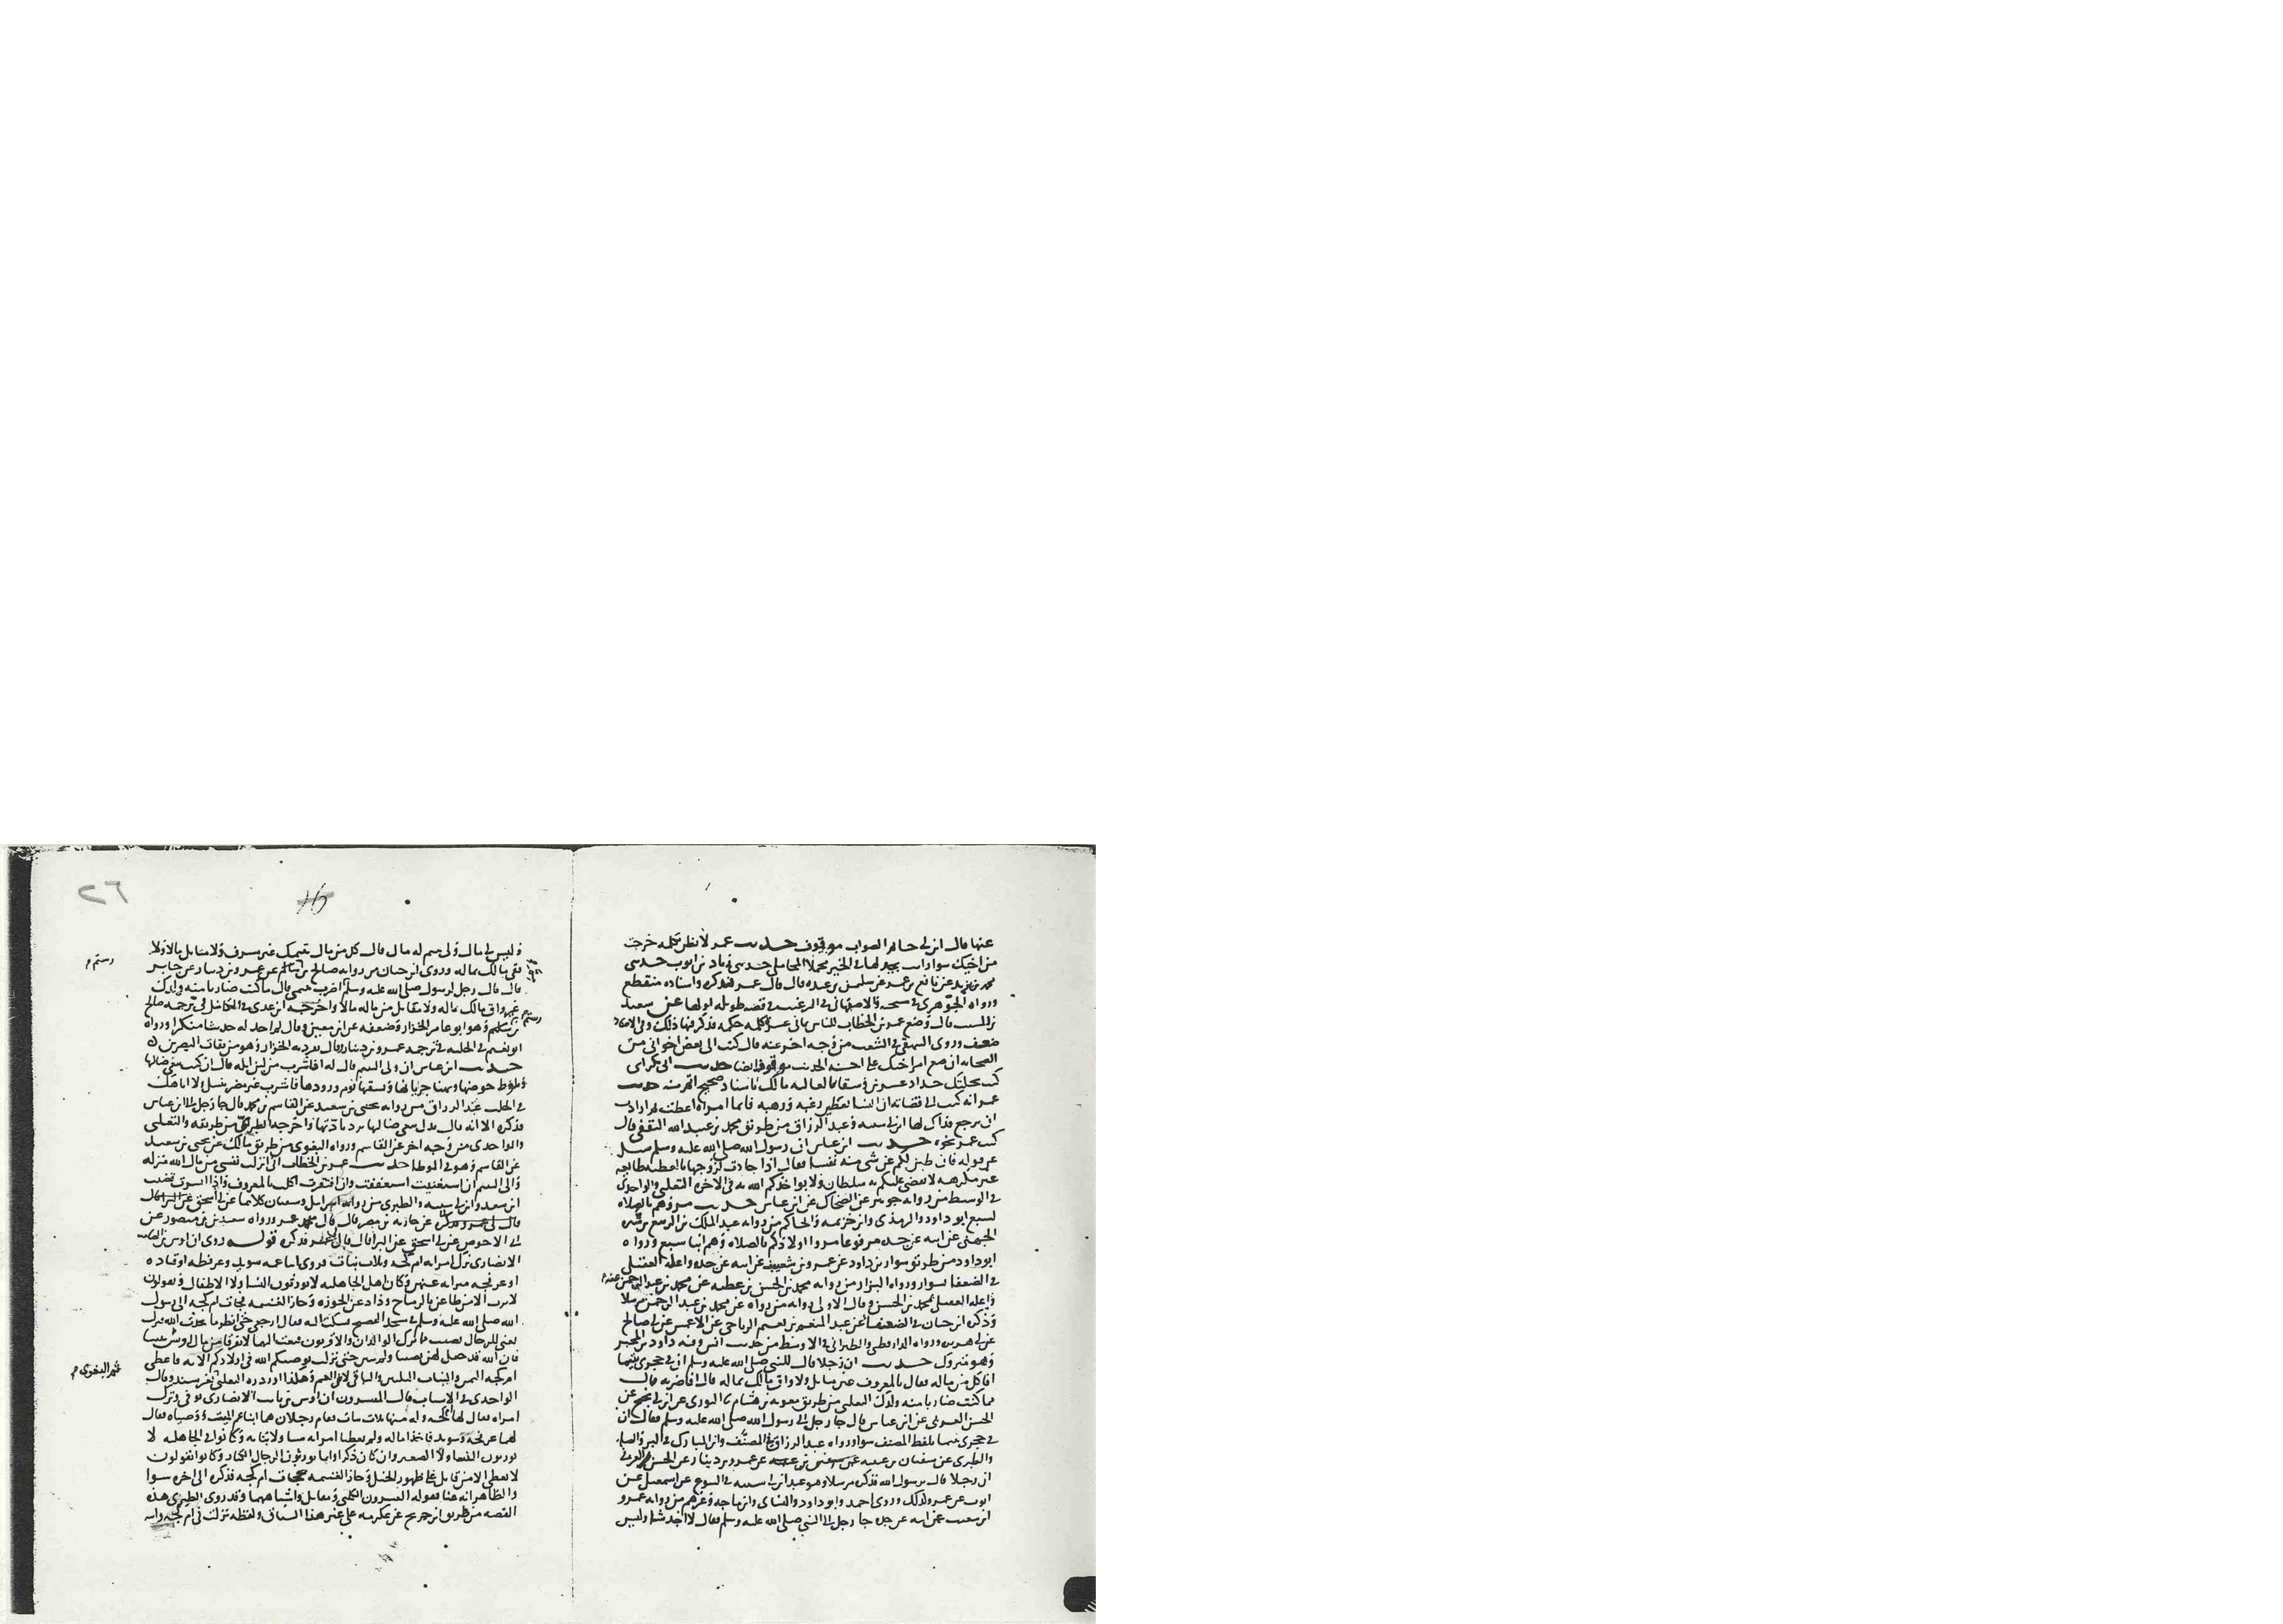 عنها قال ابن ابي حاتم الصواب موقوف حديث عمر لا نظرن خرجت
من اخيك سوادات لها في الخير محملا المحاملي حدثني زياد بن ايوب حدثني
محمد بن يزيد عن نافع بن عمر عن سليمن بن عبده قال قال عمر فذكره واسناده منقطع
ورواه الجوهري في نسخه والاصبهاني في الترغيب في قصه طويله اولها عن سعيد
بن المسيب قال وضع عمر بن الخطاب للناس ثماني عشرة كلمه حكمه فذكر فيها ذلك وفي الاسناد
ضعف وروى البيهقي في الشعب من وجه اخر عنه قال كتب الى بعض اخواني من
الصحابه ان ضع امر اخيك على احسنه الحديث موقوف ايضا حديث
عمر انه كتب الى قضاته ان النسا يعطين رغبه ورهبه فايما امراه اعطت فارادت
ان ترجع فذاك لها ابن ابي شيبه وعبد الرزاق من طريق محمد بن عبيد الله الثقفي قال
كتب عمر نحوه حديث ابن عباس ان رسول الله صلى الله عليه وسلم سيل
عن قوله فان طبن لكم عن شي منه نفسا فقال اذا جادت لزوجها بالعطيه طايعه
غير مكرهه لا يقضي عليكم به سلطان ولا يواخذكم الله به في الاخره الثعلبي والواحدي
في الوسيط من روايه جويبر عن الضحاك عن ابن عباس حديث مروهم بالصلاه
لسبع ابو داود والترمذي وابن خزيمه والحاكم من روايه عبد الملك بن الربيع بن سبره
الجهني عن ابيه عن جده مرفوعا مروا اولادكم بالصلاه وهم ابنا سبع ورواه
ابو داود من طريق سوار بن داود عن عمرو بن شعيب عن ابيه عن جده واعله العقيلي
في الضعفا بسوار ورواه البزار من روايه محمد بن الحسن بن عطيه عن محمد بن عبد الرحمن عنه
واعله العقيلي بمحمد بن الحسن وقال الاولى روايه من رواه عن محمد بن عبد الرحمن مرسلا
وذكره ابن حبان في الضعفا عن عبد المنعم بن نعيم الرياحي عن الاعمش عن ابي صالح
عن ابي هريره ورواه الدارقطني والطبراني في الاوسط من حديث انس وفيه داود بن المحبر
وهو متروك حديث ان رجلا قال للنبي صلى الله عليه وسلم ان في حجري يتيما
افاكل من ماله فقال بالمعروف غير متاثل ولا واق مالك بماله قال افاضربه قال
مما كنت ضاربا منه ولدك الثعلبي من طريق معويه بن هشام ثنا الثوري عن ابن ابي نجيح عن
الحسن العرني عن ابن عباس قال جا رجل الى رسول الله صلى الله عليه وسلم فقال ان
في حجري يتيما بلفظ المصنف سوا ورواه عبد الرزاق في المصنف وابن المبارك في البر والصله
والطبري عن سفيان بن عيينه عن عمرو بن دينار عن الحسن العرني
ان رجلا قال يرسول الله فذكره مرسلا وهو عند ابن ابي شيبه في البيوع عن اسمعيل عن
ايوب عن عمرو كذلك وروى احمد وابو داود والنساي وابن ماجه وغيرهم من روايه عمرو
ابن شعيب عن ابيه عن جده جا رجل الى النبي صلى الله عليه وسلم فقال لا اجد شيا وليس
وليس لي مال ولي يتيم له مال قال كل من مال يتيمك غير مسرف ولا متاثل مالا ولا
تقي مالك بماله وروى ابن حبان من روايه صالح بن عن عمرو بن دينار عن جابر
رستم م
قال قال رجل لرسول الله صلى الله عليه وسلم مم اضرب يتيمي قال ما كنت ضاربا منه ولدك
غير واق مالك بماله ولا متاثل من ماله مالا واخرجه ابن عدي في الكامل في ترجمه صالح
بن رستم وهو ابو عامر الخزاز وضعفه عن ابن معين وقال لم اجد له حديثا منكرا ورواه
ابو نعيم في الحليه في ترجمه عمرو بن دينار وقال تفرد به الخزاز وهو من ثقات البصريين
حديث ابن عباس ان ولي اليتيم قال له افاشرب من لبن ابله قال ان كنت تبغي ضالتها
وتلوط حوضها وتهنا جرباها وتسقيها يوم ورودها فاشرب غير مضر بنسل ولا ناهك
في الحلب عبد الرزاق من روايه يحيى بن سعيد عن القاسم بن محمد قال جا رجل الى ابن عباس
فذكره الا انه قال بدل تبغي ضالتها ترد نادتها واخرجه الطبري من طريقه والثعلبي
والواحدي من وجه اخر عن القاسم ورواه البغوي من طريق مالك عن يحيى بن سعيد
عن القاسم وهو في الموطا حديث عمر بن الخطاب اني انزلت نفسي من مال الله منزله
والي اليتيم ان استغنيت استعففت وان افتقرت اكلت بالمعروف واذا ايسرت قضيت
ابن سعد وابن ابي شيبه والطبري من روايه اسرايل وسفيان كلاهما عن ابي اسحق
عن حارثه بن مضرب قال قال عمر ورواه سعيد بن منصور عن
ابي الاحوص عن ابي اسحق عن البرا قال قال لي عمر فذكره قوله روى ان اوس بن الصامت
الانصاري ترك امراته ام كجه وثلاث بنات فزوى ابنا عمه سويد وعرفطه او قتاده
او عرفجه ميراثه عنهن وكان اهل الجاهليه لا يورثون النسا ولا الاطفال ويقولون
لا يرث الا من طاعن بالرماح وذاد عن الحوزه وحاز الغنيمه فجات ام كجه الى رسول
الله صلى الله عليه وسلم في مسجد الفضيخ فشكت اليه فقال ارجعي حتى انظر ما يحدث الله فنزلت
يعني للرجال نصيب مما ترك الوالدان والاقربون فبعث اليهما لا تفرقا من مال اوس شيا
فان الله قد جعل لهن نصيبا ولم يبين حتى نزلت يوصيكم الله في اولادكم الايه فاعطى
ام كجه الثمن والبنات الثلثين والباقي لابني العم وهكذا اورده الثعلبي بغير سند وقال
ثم البغوي م
الواحدي في الاسباب قال المفسرون ان اوس بن ثابت الانصاري توفي وترك
امراه يقال لها ام كجه وله منها ثلاث بنات فقام رجلان هما ابنا عم الميت ووصياه يقال
لهما عرفجه وسويد فاخذا ماله ولم يعطيا امراته شيا ولا بناته وكانوا في الجاهليه لا
يورثون النسا ولا الصغير وان كان ذكرا وانما يورثون الرجال الكبار وكانوا يقولون
لا يعطى الا من قاتل على ظهور الخيل وحاز الغنيمه فجات ام كجه فذكره الى اخره سوا
والظاهر انه عنا بقوله المفسرون الكلبي ومقاتل واشباههما وقد روى الطبري هذه
القصه من طريق ابن جريج عن عكرمه على غير هذا السياق ولفظه نزلت في ام كجه وابنه